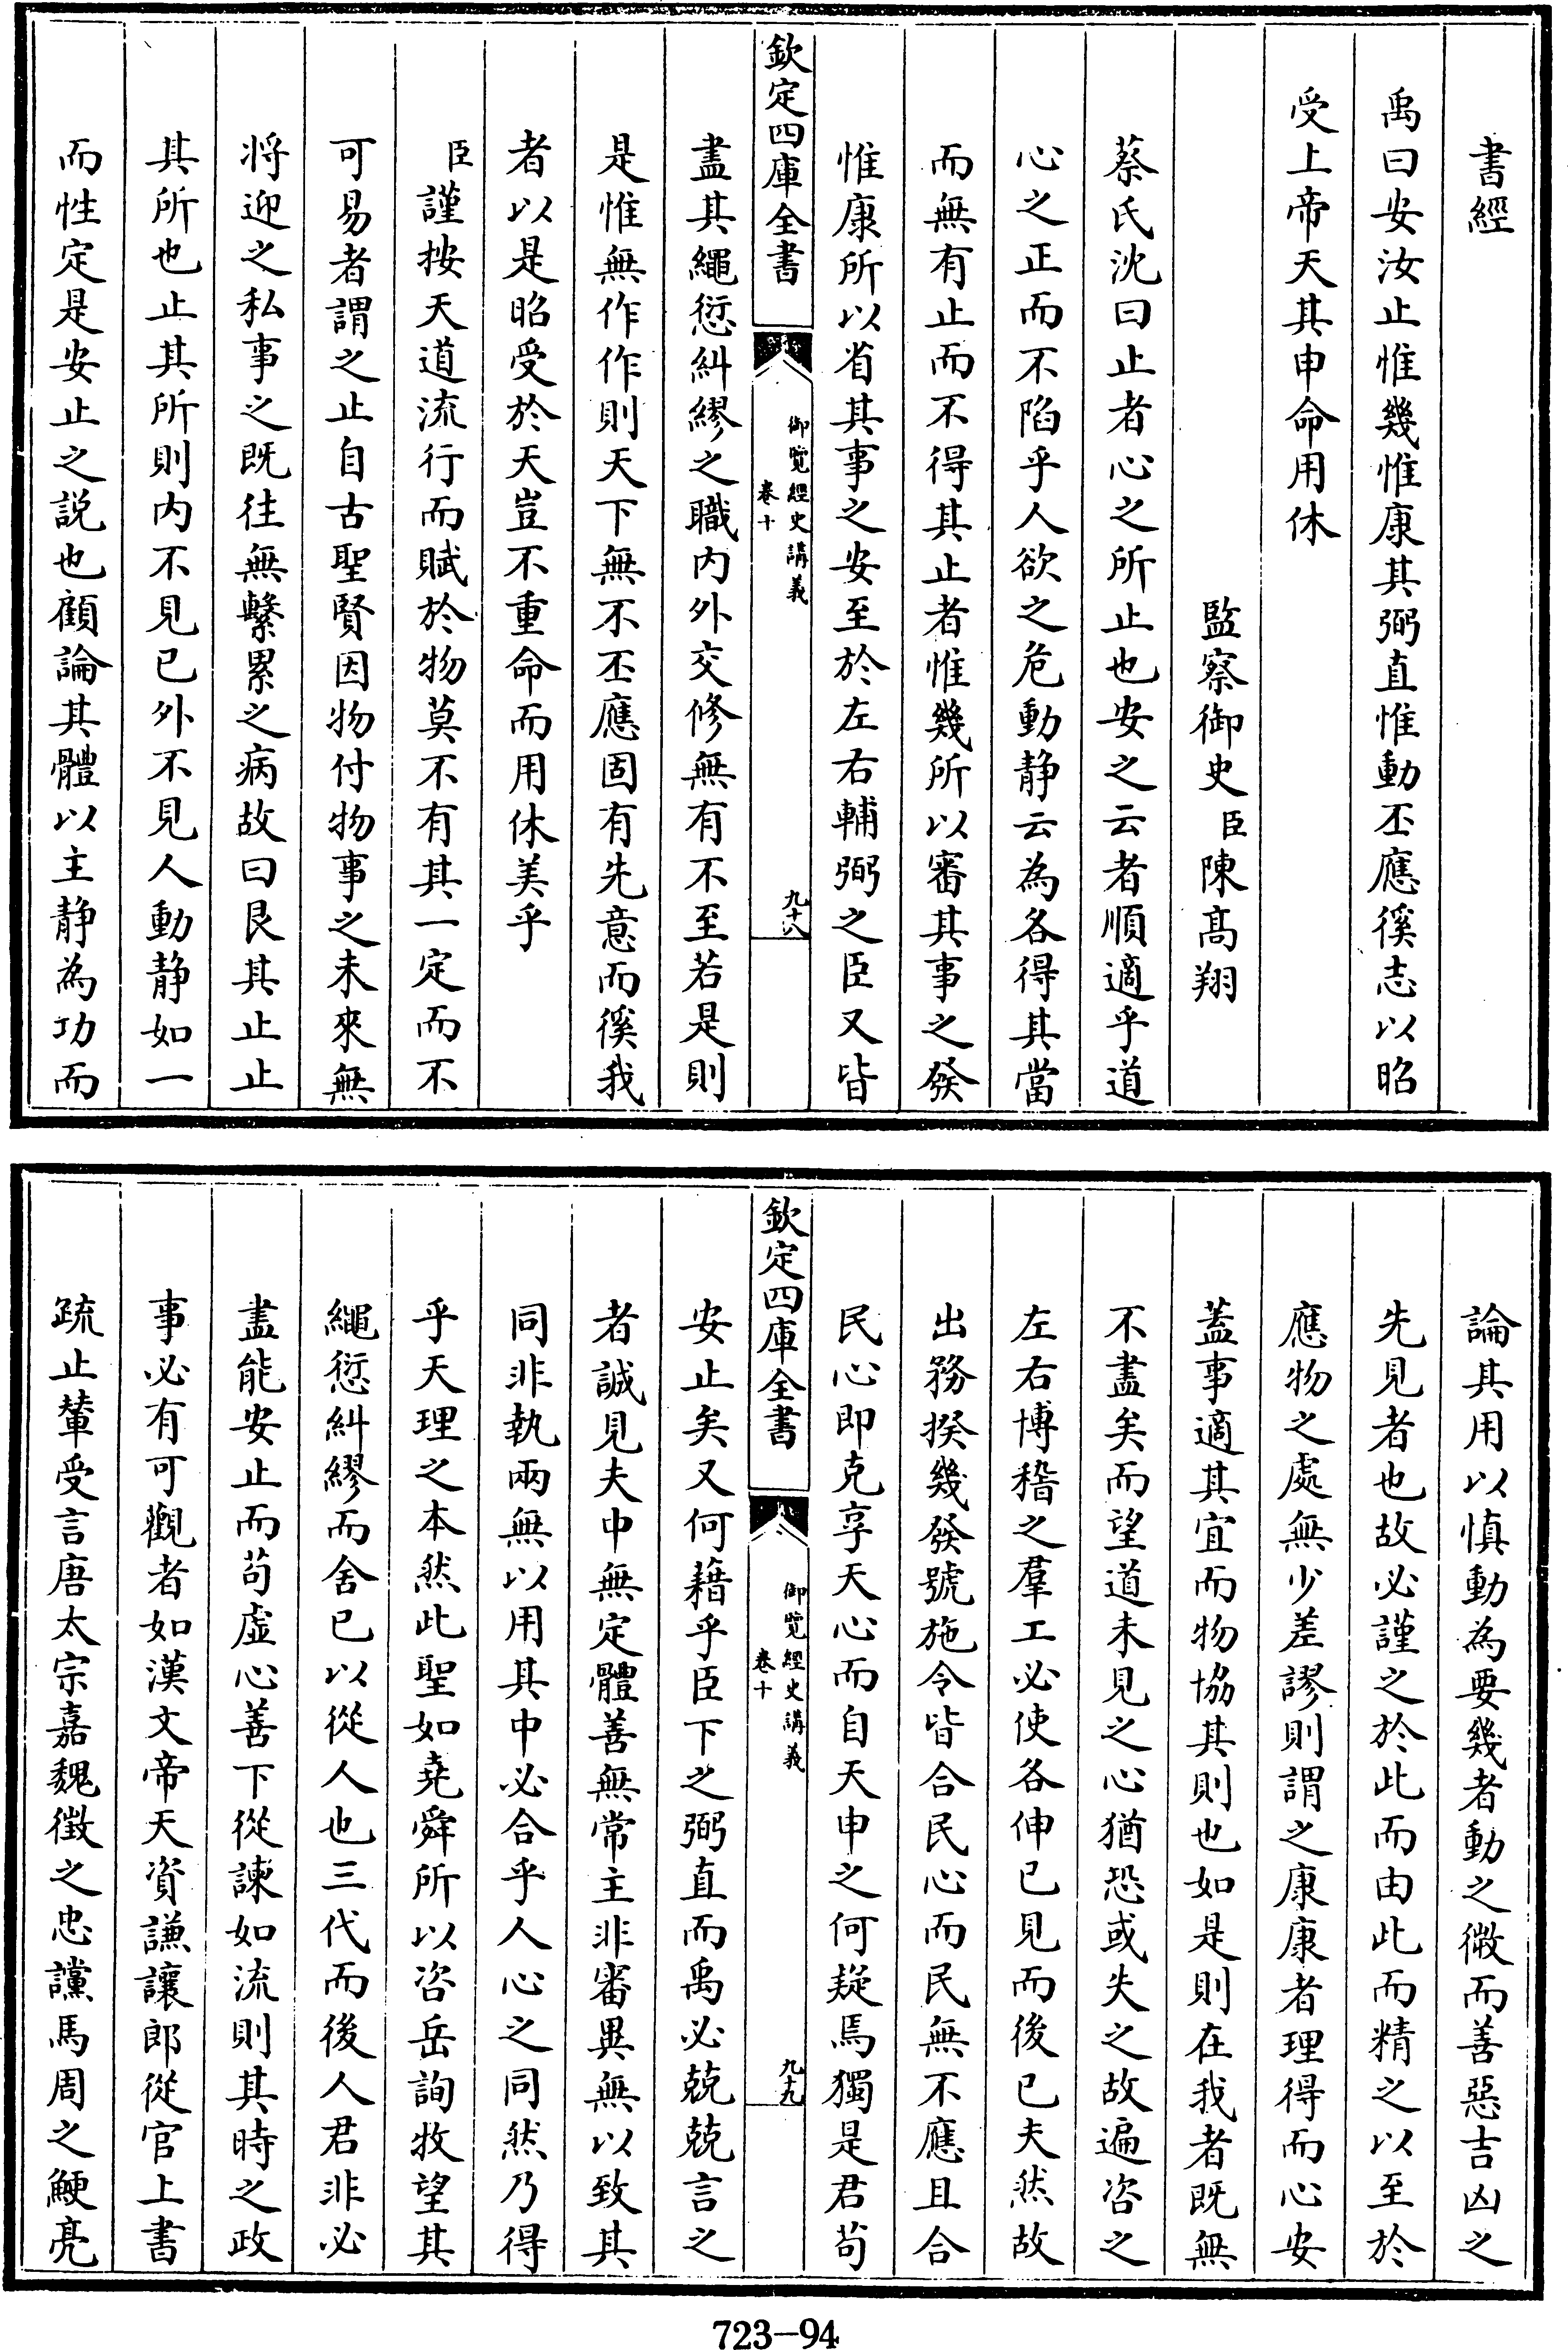 書經
禹曰安汝止惟幾惟康其弼直惟動丕應徯志以昭
受上帝天其申命用休
監察御史臣陳髙翔
蔡氏沈曰止者心之所止也安之云者順適乎道
心之正而不陷乎人欲之危動静云為各得其當
而無有止而不得其止者惟幾所以審其事之發
惟康所以省其事之安至於左右輔弼之臣又皆
欽定四庫全書
御覽經史講義
卷十
九十八
盡其繩愆糾繆之職内外交修無有不至若是則
是惟無作作則天下無不丕應固有先意而徯我
者以是昭受於天豈不重命而用休美乎
臣謹按天道流行而賦於物莫不有其一定而不
可易者謂之止自古聖賢因物付物事之未來無
將迎之私事之既往無繫累之病故曰艮其止止
其所也止其所則内不見已外不見人動静如一
而性定是安止之説也顧論其體以主静為功而
論其用以慎動為要幾者動之微而善惡吉凶之
先見者也故必謹之於此而由此而精之以至於
應物之處無少差謬則謂之康康者理得而心安
葢事適其宜而物協其則也如是則在我者既無
不盡矣而望道未見之心猶恐或失之故遍咨之
左右博稽之羣工必使各伸已見而後已夫然故
出務揆幾發號施令皆合民心而民無不應且合
民心即克享天心而自天申之何疑焉獨是君茍
欽定四庫全書
御覽經史講義
卷十
九十九
安止矣又何藉乎臣下之弼直而禹必兢兢言之
者誠見夫中無定體善無常主非審異無以致其
同非執兩無以用其中必合乎人心之同然乃得
乎天理之本然此聖如堯舜所以咨岳詢牧望其
繩愆糾繆而舍已以從人也三代而後人君非必
盡能安止而茍虛心善下從諫如流則其時之政
事必有可觀者如漢文帝天資謙讓郎從官上書
疏止輦受言唐太宗嘉魏徵之忠讜馬周之鯁亮
723—94